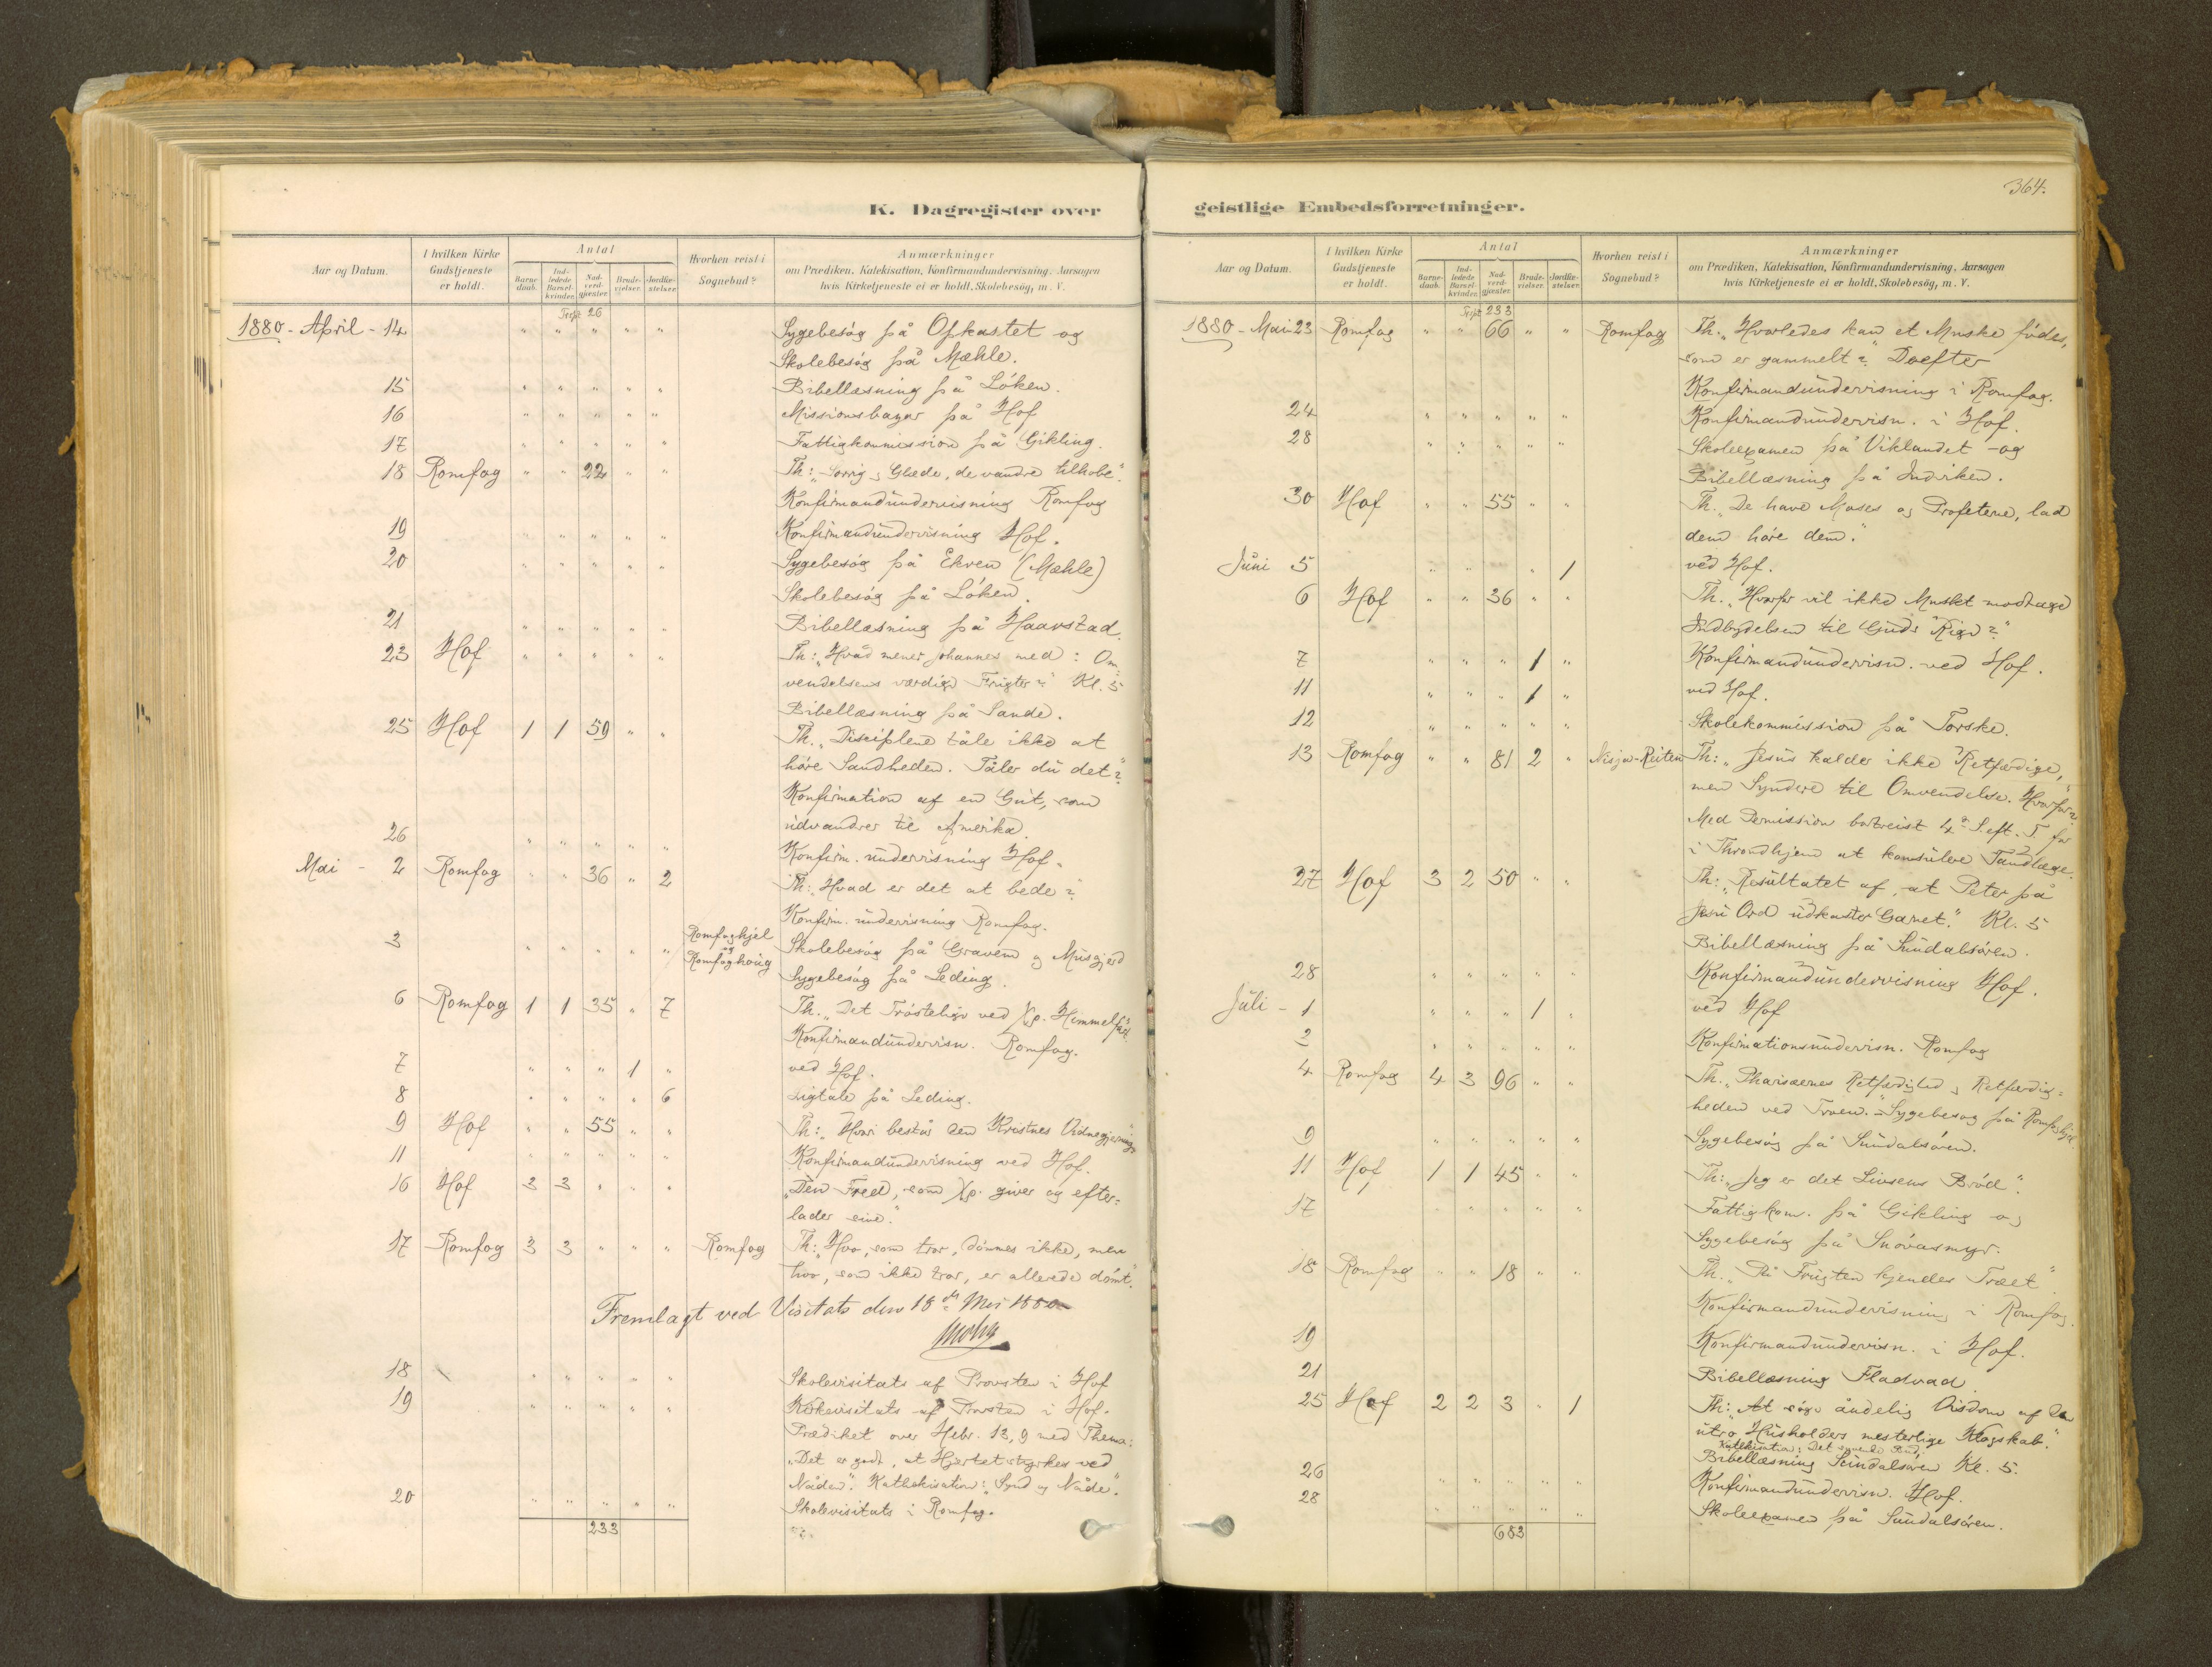 K. Dagregister over
Aar og Datum.
I hvilken Kirke Gudstjeneste er holdt.
Antal
Barnedaab.
Indledede Barselkvinder.
Nadverdgjæster.
Brudevielser.
Jordfæstelser.
Hvorhen reist i Sognebud?
Anmærkninger
om Prædiken, Katekisation, Konfirmandundervisning, Aarsagen
hvis Kirketjeneste ei er holdt, Skolebesög, m. V.
Trspt 26
1880 - April - 14 " " " " " Sygebesög på Ofkastet og
Skolebesög på Mæhle.
15 " " " " " Bibellæsning på Löken.
16 " " " " " Missionsbazar på Hof
17 " " " " " Fattigkommission på Gikling.
18 Romfog " " 22 " " Th: "Sorrig og Glæde, de vandre tilhobe".
Konfirmandundervisning Romfog
19 " " " " " Konfirmandundervisning Hof.
20 " " " " " Sygebesög på Ekren (Mæhle)
Skolebesög på Löken.
21 " " " " " Bibellæsning på Haarstad.
23 Hof " " " " " Th: "Hvad mener Johannes med: Om-
vendelsens værdige Frugter?" Kl. 5
Bibellæsning på Sande.
25 Hof 1 1 59 " " Th. "Disciplene tåle ikke at
höre Sandheden. Tåler du det?"
Konfirmation af en Gut, som
udvandrer til Amerika.
26 " " " " " Konfirm. undervisning Hof.
Mai - 2 Romfog " " 36 " 2 Th: "Hvad er det at bede?
Konfirm. undervisning Romfog.
3 " " " " " Romfoghjel og Romfoghoug Skolebesög på Gravem og Musgjerd
Sygebesög på Leding.
6 Romfog 1 1 35 " 7 Th. "Det Tröstelige ved Xp. Himmelfart".
Konfirmandundervisn. Romfog.
7 " " " 1 " ved Hof.
8 " " " " 6 Ligtale på Leding.
9 Hof " " 55 " " Th: "Hvori består den Kristnes Vidnegjerning
11 " " " " " Konfirmandundervisning ved Hof.
16 Hof 3 3 " " " "Den Fred, som Xp. giver og efter-
lader sine."
17 Romfog 3 3 " " " Romfog Th: "Hvo, som tror, dömmes ikke, men
hvo, som ikke tror, er allerede dömt".
Fremlagt ved Visitats den 18de Mai 1880
18 " " " " " Skolevisitats af Provsten i Hof
19 " " " " " Kirkevisitats af Provsten i Hof.
Prædiket over Hebr. 13, 9 med Thema:
"Det er godt, at Hjertet styrkes ved
Nåden". Kathekisation: "Synd og Nåde".
20 " " " " " Skolevisitats i Romfog.
233
364.
geistlige Embedsforretninger.
Aar og Datum.
I hvilken Kirke Gudstjeneste er holdt.
Antal
Barnedaab.
Indledede Barselkvinder.
Nadverdgjæster.
Brudevielser.
Jordfæstelser.
Hvorhen reist i Sognebud?
Anmærkninger
om Prædiken, Katekisation, Konfirmandundervisning, Aarsagen
hvis Kirketjeneste ei er holdt, Skolebesög, m. V.
Trspt 233
1880 - Mai 23 Romfog " " 66 " " Romfog Th. "Hvorledes kan et Mnske födes,
som er gammelt?" Derefter
Konfirmandundervisning i Romfog.
24 " " " " " Konfirmandundervisn. i Hof.
28 " " " " " Skoleexamen på Viklandet - og
Bibellæsning på
30 Hof " " 55 " " Th. "De have Moses og Profeterne, lad
dem höre dem."
Juni 5 " " " 1 ved Hof.
6 Hof " " 36 " " Th. "Hvorfor vil ikke Mnsket modtage
Indbydelsen til Guds Rige?"
7 " " " 1 " Konfirmandundervisn. ved Hof.
11 " " " 1 " ved Hof.
12 " " " " " Skolekommission på Torske.
13 Romfog " " 81 2 " Nisja-Reiten Th: "Jesus kalder ikke Retfærdige,
men Syndere til Omvendelse. Hvorfor?"
Med Permission bortreist 4de S. eft. T. for
i Throndhjem at konsulere Tandlæge.
27 Hof 3 2 50 " " Th: "Resultatet af, at Peter på
Jesu Ord udkaster Garnet." Kl. 5
Bibellæsning på Sundalsören.
28 " " " " " Konfirmandundervisning Hof.
Juli - 1 " " " 1 " ved Hof
2 " " " " " Konfirmationsundervisn. Romfog
4 Romfog 4 3 96 " " Th. "Pharisæernes Retfærdighed og Retfærdig-
heden ved Troen." Sygebesög på Romfoghjel
9 " " " " " Sygebesög på Sundalsören.
11 Hof 1 1 45 " " Th: "Jeg er det Livsens Bröd".
17 " " " " Fattigkom. på Gikling og
Sygebesög på Snövasmyr.
18 Romfog " " 18 " " Th. "På Frugten kjendes Træet"
Konfirmandundervisning i Romfog.
19 Konfirmandundervisn. i Hof.
21 Bibellæsning Fladvad
25 Hof 2 2 3 " 1 Th: "At söge åndelig Visdom af den
utro Husholders mesterlige Klogskab."
Katekisation: Det syvende Bud.
Bibellæsning Sundalsören Kl. 5.
26 " " " " " Konfirmandundervisn. Hof.
28 " " " " " Skoleexamen på Sundalsören.
683